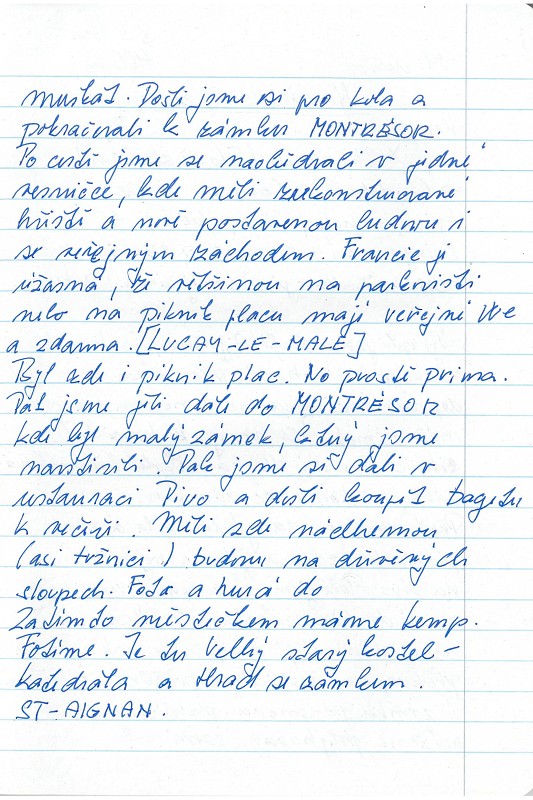 muskát. Došli jsme si pro kola a
pokračovali k zámku MONTRÉSOR.
Po cestě jsme se naobědvali v jedné
vesničce, kde měli zrekonstruované
hřiště a nově postavenou budovu i
se veřejným záchodem. Francie je
úžasná, že většinou na parkovišti
nebo na piknik placu mají veřejné WC
a zdarma. [LUCAY-LE-MALE]
Byl zde i piknik plac. No prostě prima.
Pak jsme jeli dále do MONTRÉSOR
kde byl malý zámek, který jsme
navštívili. Pak jsme si dali v
restauraci Pivo a došli koupit bagetu
k večeři. Měli zde nádhernou
(asi tržnici) budovu na dřevěných
sloupech. Fota a hurá do
Za tímto městečkem máme kemp.
Fotíme. Je tu velký starý kostel -
katedrála a Hrad se zámkem.
ST-AIGNAN.